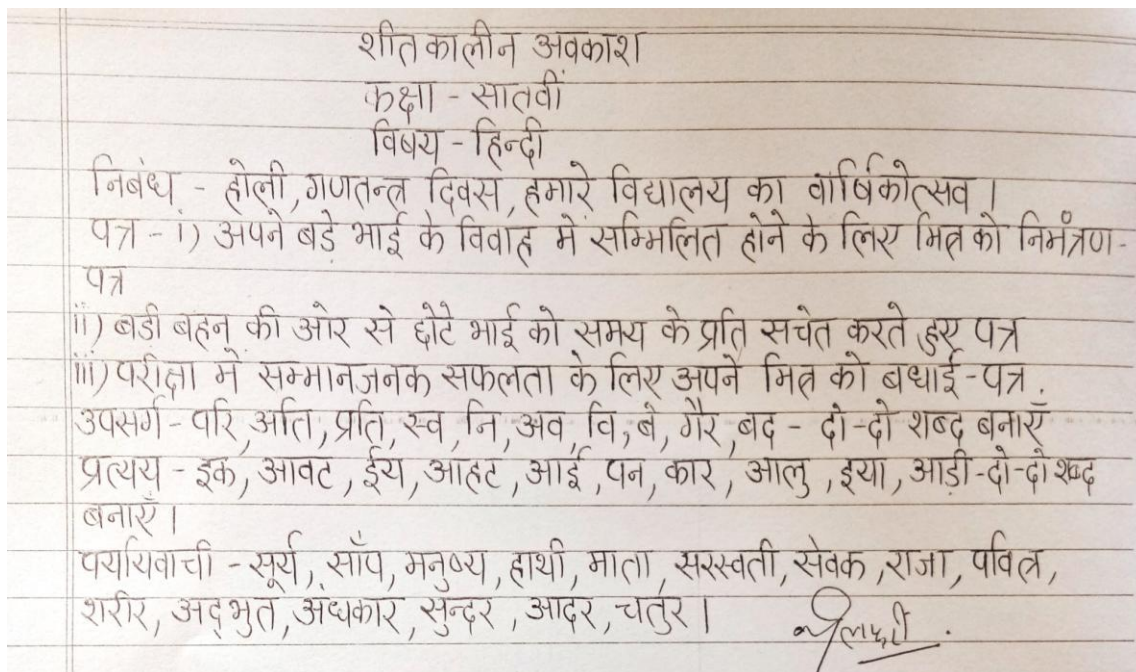 शीतकालीन अवकाश
कक्षा - सातवीं
विषय - हिन्दी
निबंध - होली, गणतन्त्र दिवस, हमारे विद्यालय का वार्षिकोत्सव ।
पत्र - i) अपने बड़े भाई के विवाह में सम्मिलित होने के लिए मित्र को निमंत्रण-
पत्र
ii) बडी बहन की ओर से छोटे भाई को समय के प्रति सचेत करते हुए पत्र
iii) परीक्षा में सम्मानजनक सफलता के लिए अपने मित्र को बधाई-पत्र.
उपसर्ग - परि, अति, प्रति, स्व, नि, अव, वि, बे, गैर, बद - दो-दो शब्द बनाएँ
प्रत्यय - इक, आवट, ईय, आहट, आई, पन, कार, आलु, इया, आड़ी-दो-दो शब्द
बनाएँ ।
पर्यायवाची - सूर्य, साँप, मनुष्य, हाथी, माता, सरस्वती, सेवक, राजा, पवित्र,
शरीर, अद्भुत, अंधकार, सुन्दर, आदर, चतुर ।